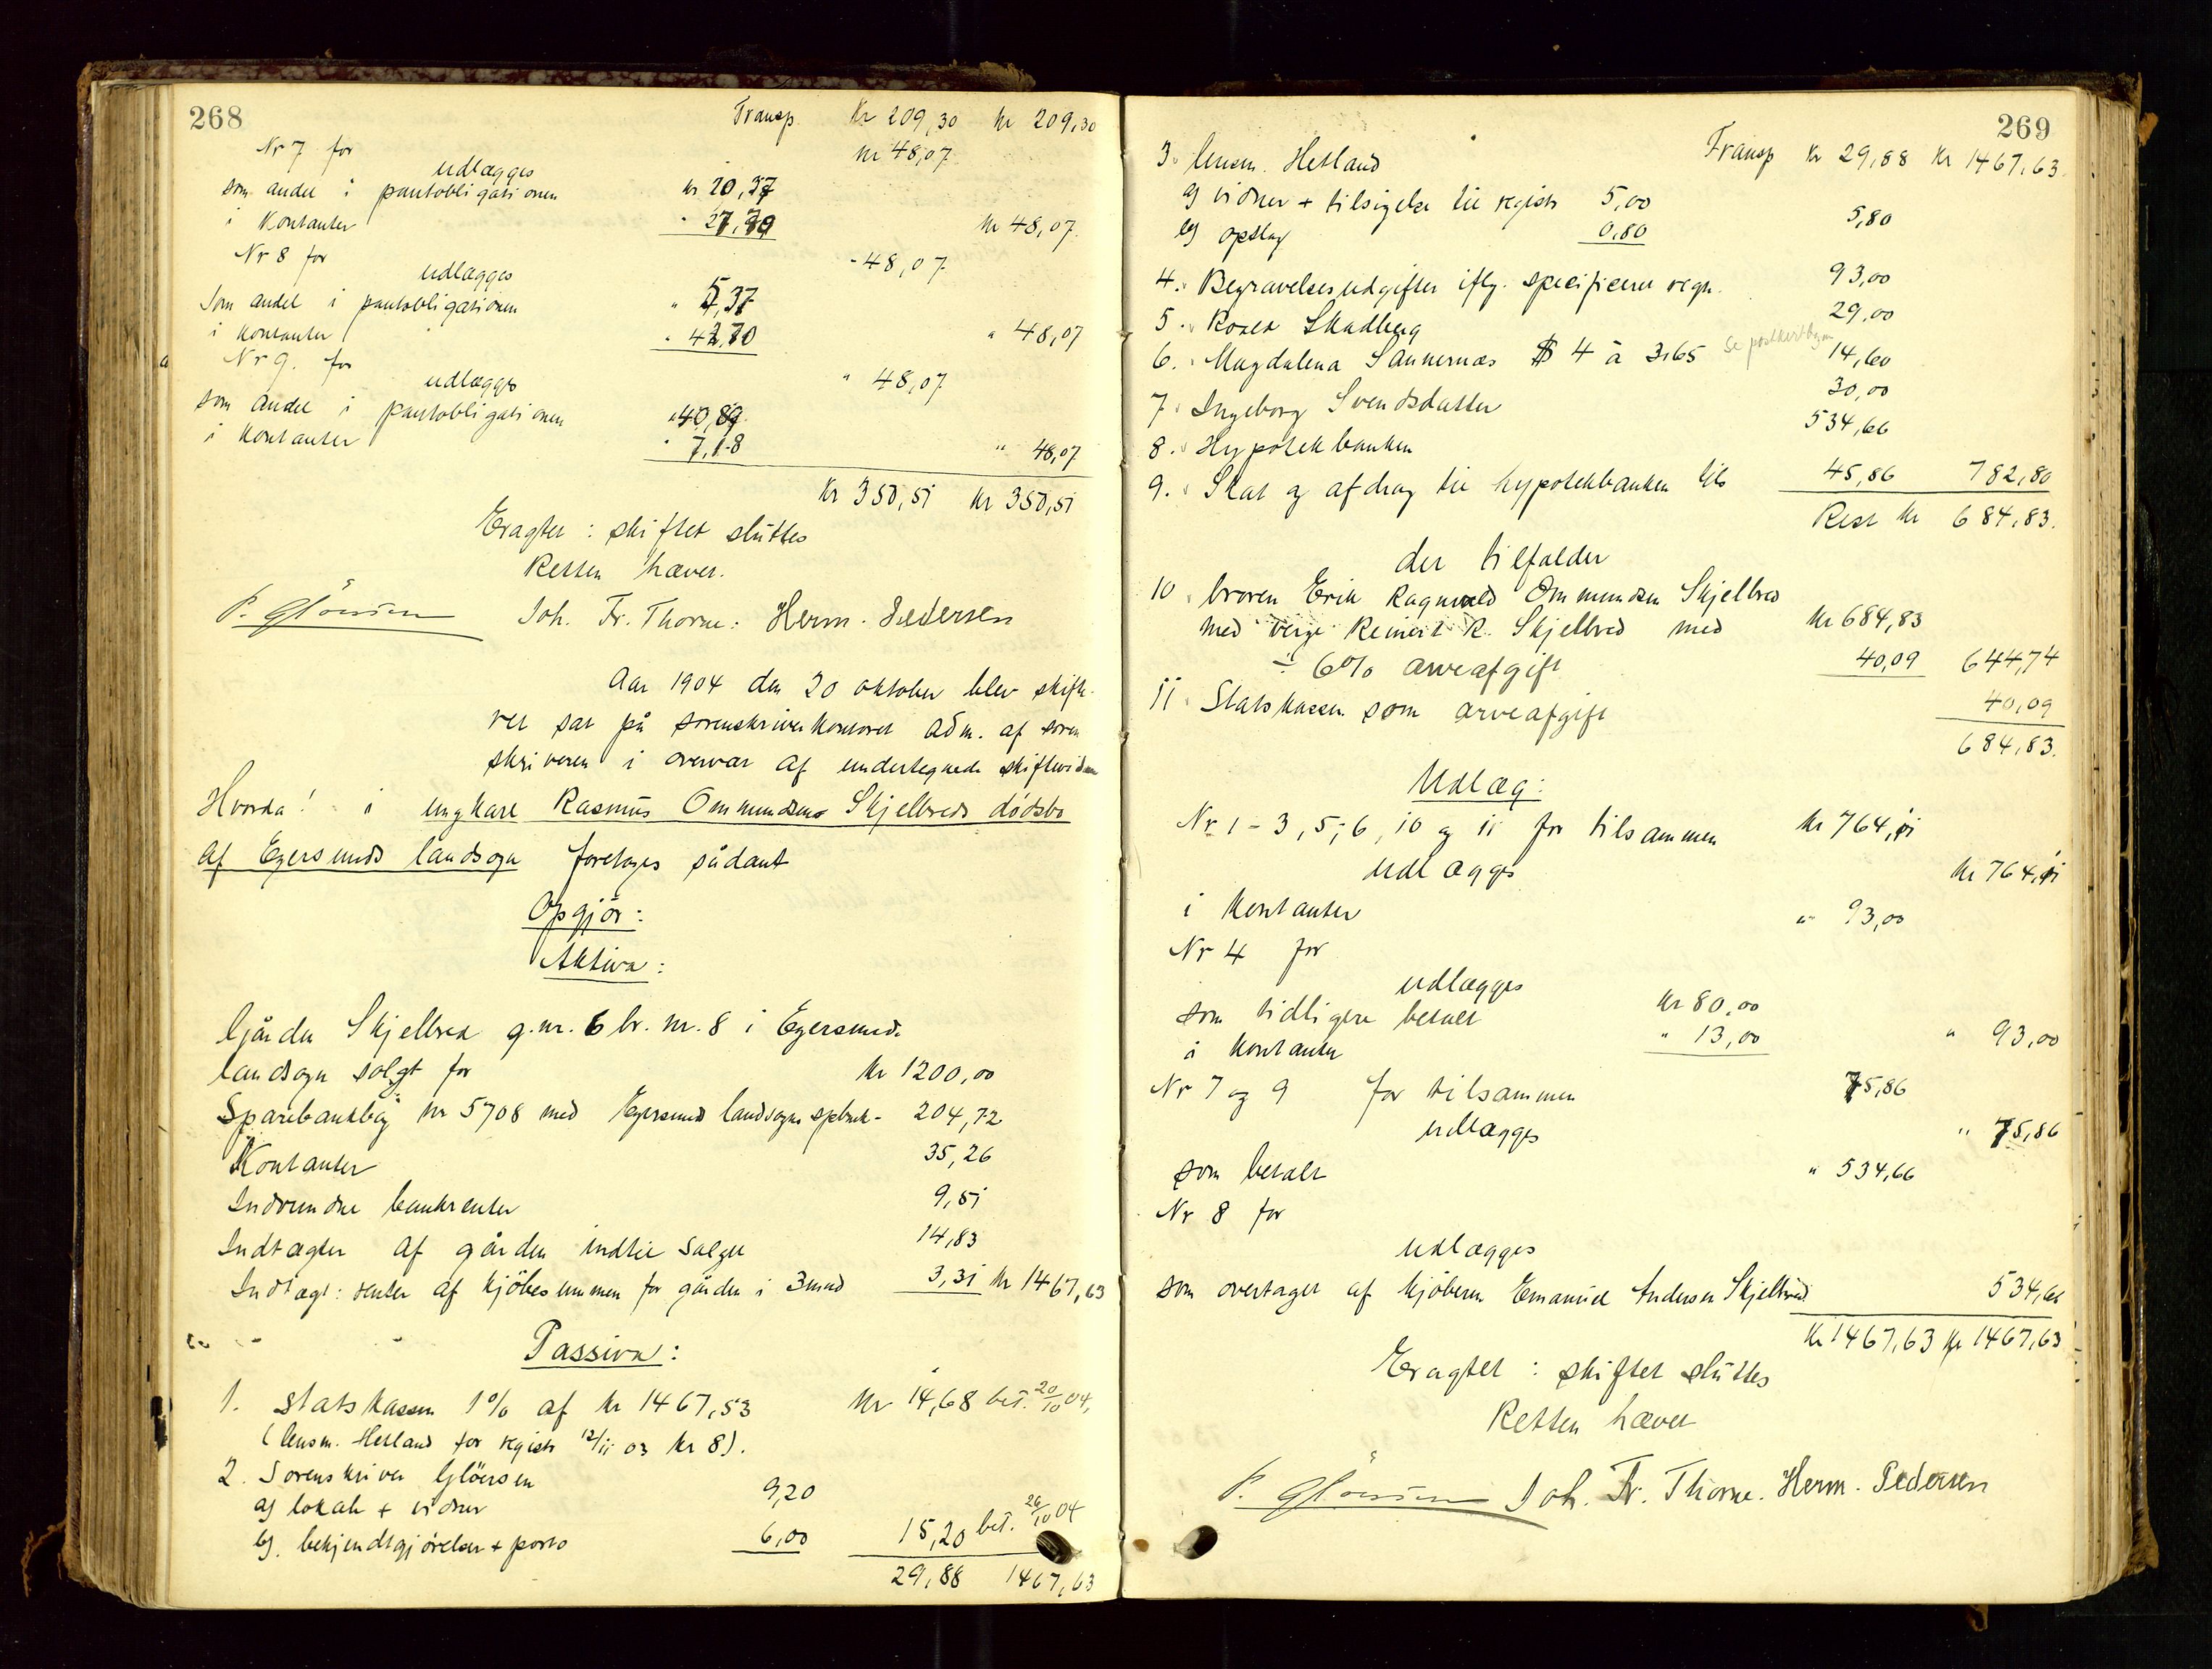 268
Transp Kr 209,30 Kr 209,30
Nr 7 for Kr 48,07
udlægges
som andel i pantobligationen Kr 20,37
i Kontanter " 27,70 Kr 48,07
Nr 8 for " 48,07
udlægges
som andel i pantobligationen " 5,37
i kontanter " 42,70 " 48,07
Nr 9. for " 48,07
udlægges
som andel i pantobligationen " 40,89
i kontanter " 7,18 " 48,07
Kr 350,51 Kr 350,51
Eragtet: skiftet sluttes
Retten hævet.
P. Glöersen Joh. Fr. Thorne. Herm. Pedersen
Aar 1904 den 20 oktober blev skifte-
ret sat på sorenskriverkontoret adm. af soren
skriveren i overvær af undertegnede skiftevidner
Hvorda! i ungkarl Rasmus Ommundsens Skjelbreds dödsbo
af Egersunds landsogn foretoges sådant
Opgjör:
Aktiva:
Gården Skjelbred g.nr. 6 br. nr. 8 i Egersunds
landsogn solgt for Kr 1200,00
Sparebankbog nr 5708 med Egersund landsogns spbnk- 204,72
Kontanter 35,26
Indvundne bankrenter 9,51
Indtægter af gården indtil salget 14,83
Indtægt: renter af kjöbesummen for gården i 3 mnd 3,31 Kr 1467,63
Passiva:
1. statskassen 1% af Kr 1467,53 Kr 14,68 bet. 20/10 04,
(lensm. Hetland for registr 12/11 03 Kr 8).
2. Sorenskriver Glöersen
a) lokale + vidner 9,20
b) bekjendtgjörelser + porto 6,00 15,20 bet. 20/10 04
29,88 1467,63
269
Transp Kr 29,88 Kr 1467,63
3. lensm. Hetland
a) vidner + tilsigelse til registr 5,00
b) opslag 0,80 5,80
4. Begravelsesudgifter iflg. specificeret regn. 93,00
5. Skadberg 29,00
6. Magdalena Sannernæs $ 4 à 3.65 14,60
7. Ingeborg Svendsdatter 30,00
8. Hypotekbanken 534,66
9. Skat og afdrag til hypotekbanken 45,86 782,80
Rest Kr 684,83.
der tilfalder
10. broren Erik Ragnvald Ommundsen Skjelbred
med verge Reinert R. Skjelbred med Kr 684,83
÷ 6% arveafgift 40,09 644,74
11. Statskassen som arveafgift 40,09
684,83.
Udlæg:
Nr 1-3, 5, 6, 10 og 11 for tilsammen Kr 764,11
udlægges
i kontanter Kr 764,11
Nr 4 for " 93,00
udlægges
som tidligere betalt Kr 80,00
i kontanter " 13,00 " 93,00
Nr 7 og 9 for tilsammen 75,86
udlægges
som betalt " 75,86
Nr 8 for " 534,66
udlægges
som overtaget af kjöberen Emanuel Andersen Skjelbred 534,66
Kr 1467,63 Kr 1467,63
Eragtet: skiftet sluttes
Retten hævet
P. Glöersen Joh. Fr. Thorne. Herm. Pedersen